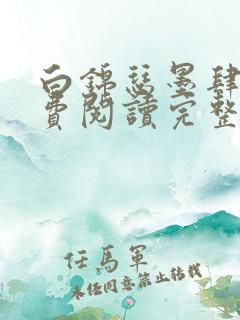 白錦瑟墨肆
費閱讀完整
任馬軍
未經同意禁止轉載